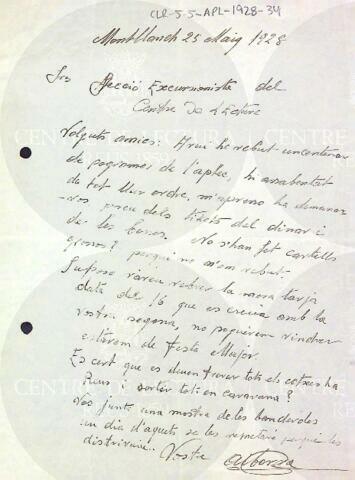 CLR-5-5-APL-1928-34
Montblanch 25 Maig 1928
Srs Secció Excursionista del
Centre de Lectura
Volguts amics: Avui he rebut un centenar
de programes de l'aplec, hi assabentat
de tot llur ordre, m'apreso ha demanar
vos preu dels tikets del dinar i
de les bosses. No s'han fet cartells
grossos? perqué no n'em rebut.
Suposo vareu rebrer la meva tarja
data del 16 que es creuá amb la
vostra segona, no poguerem vindrer
estarem de Festa Major.
Es cert que es duen frarer tots els cotxes ha
Reus i sortir tots en caravana?
Vos junto una mostra de les banderoles
un dia d'aquets se les remetré perque les
distribuixi.
Vostre